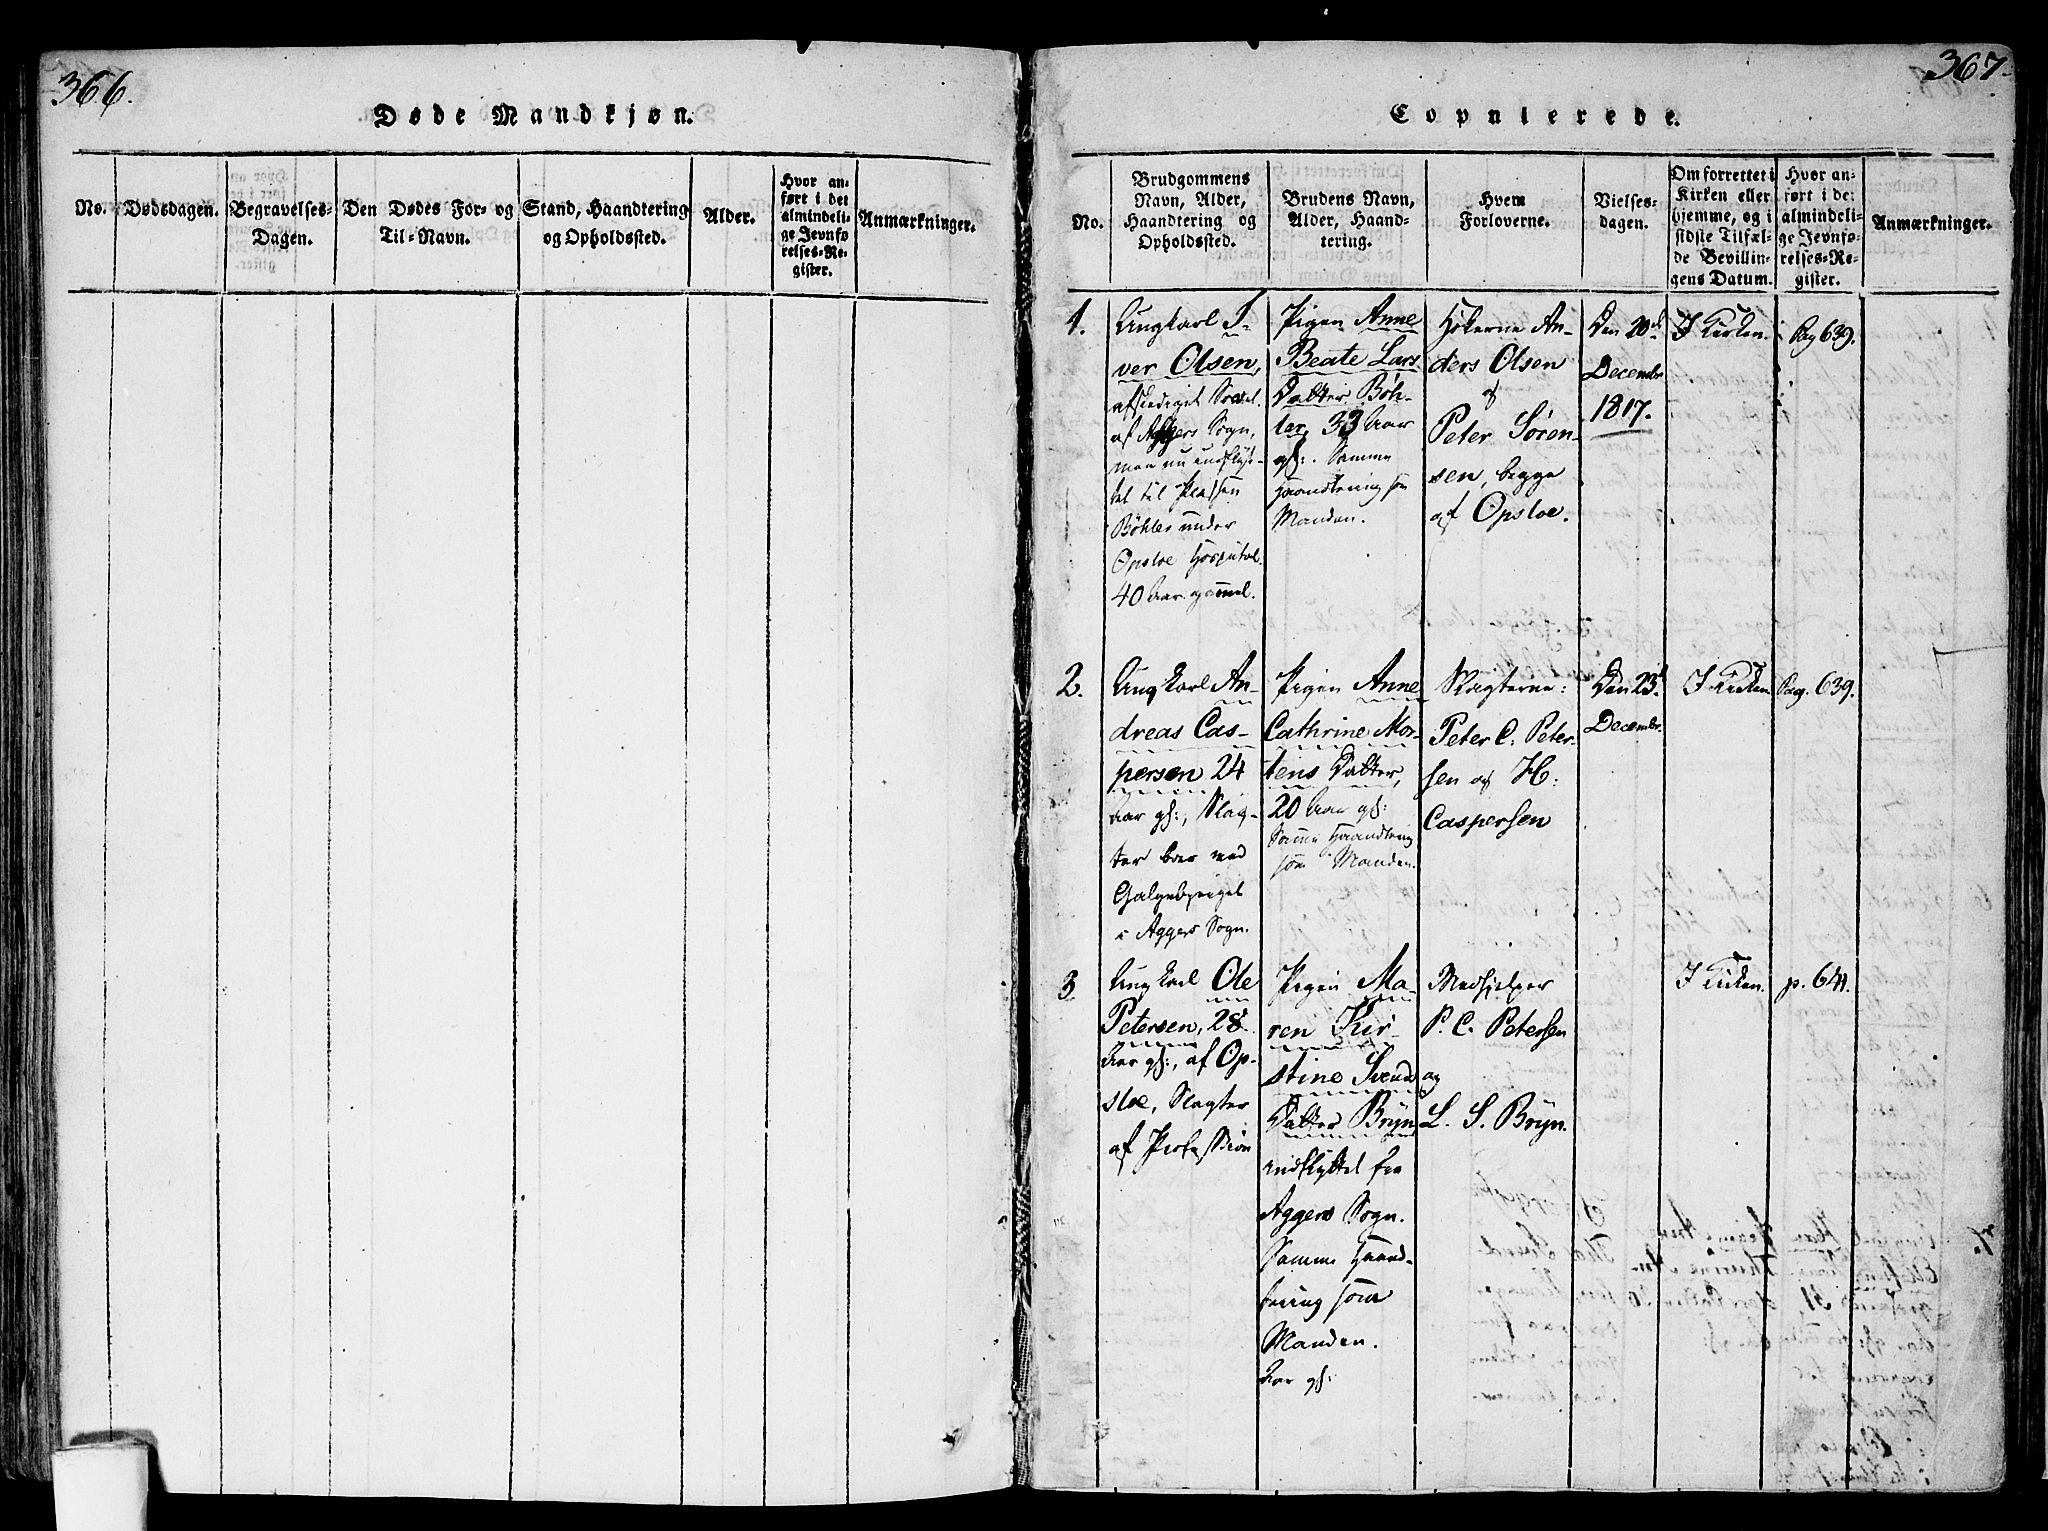 366.
Døde Mandkjøn.
No.
Dødsdagen.
Begravelses-
Dagen.
Den Dødes For- og
Til-Navn.
Stand, Haandtering
og Opholdssted.
Alder.
Hvor an-
ført i det
almindeli-
ge Jevnfø-
relses-Re-
gister.
Anmærkninger.
367.
Copulerede.
No.
Brudgommens
Navn, Alder,
Haandtering og
Opholdssted.
Brudens Navn,
Alder, Haand-
tering.
Hvem
Forloverne.
Vielses-
dagen.
Om forrettet i
Kirken eller
hjemme, og i
sidste Tilfæl-
de Bevillin-
gens Datum.
Hvor an-
ført i det
almindeli-
ge Jevnfø-
relses-Re-
gister.
Anmærkninger.
1.
Ungkarl I-
ver Olsen,
afskediget Soldat
af Aggers Sogn,
men nu indflyt-
tet til Pladsen
Böhler under
Opsloe Hospital.
40 Aar gammel.
Pigen Anne
Beate Lars
Datter Böh-
ler, 33 Aar
gl:. Samme
Haandtering som
Manden.
Høkerne An-
ders Olsen
og
Peter Sören-
sen, begge
af Opsloe.
Den 20de
December
1817.
I Kirken.
Pag 639.
2.
Ungkarl An-
dreas Cas-
persen 24
Aar gl:, Slag-
ter boer ved
Galgebjerget
i Aggers Sogn.
Pigen Anne
Cathrine Mor-
tens Datter,
20 Aar gl:
Samme Haandtering
som Manden.
Slagterne:
Peter C. Peter-
sen og H:
Caspersen
Den 23d
December.
I Kirken
Pag. 639.
3
Ungkarl Ole
Petersen, 28
Aar gl:, af Op-
sloe, Slagter
af Profession
Pigen Ma-
ren Kir-
stine Svends
Datter Bryn
indflyttet fra
Aggers Sogn.
Samme Haand-
tering som
Manden.
Aar gl:
Medhjelper
P. C. Petersen
og
L. S. Bryn.
I Kirken.
p. 641.